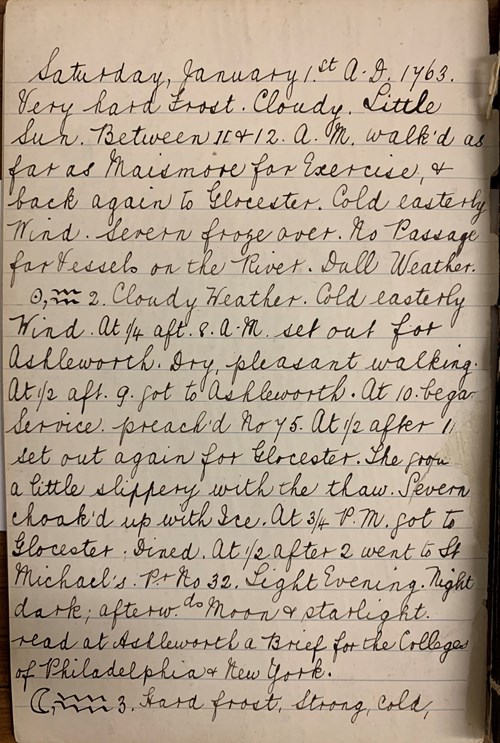 Saturday, January 1.st A.D. 1763.
Very hard Frost. Cloudy. Little
Sun. Between 11 & 12. A. M. walk'd as
far as Maismore for Exercise, &
back again to Glocester. Cold easterly
Wind. Severn froze over. No Passage
for Vessels on the River. Dull Weather.
☉, ♒ 2. Cloudy Weather. Cold easterly
Wind. At 1/4 aft. 8. A.M. set out for
Ashleworth. Dry, pleasant walking.
At 1/2 aft. 9. got to Ashleworth. At 10. bega
Service. preach'd No 75. At 1/2 after 11
set out again for Glocester. The grou
a little slippery with the thaw. Severn
choak'd up with Ice. At 3/4 P.M. got to
Glocester. Dined. At 1/2 after 2 went to St
Michael's. Pr No 32. Light Evening. Night
dark; afterw.ds Moon & starlight.
read at Ashleworth a Brief for the Colleges
of Philadelphia & New York.
☾, ♒ 3. Hard frost, Strong, cold,